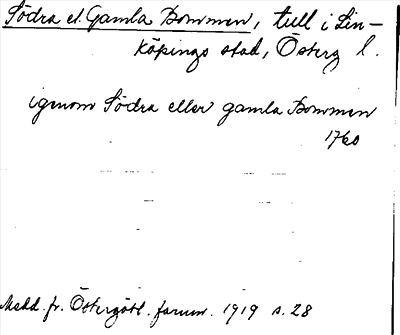 Södra el. Gamla Bommen, tull i Lin-
köpings stad, Österg l.
igenom Södra eller gamla Bommen
1760
Medd. fr. Östergötl. fornm. 1919 s. 28